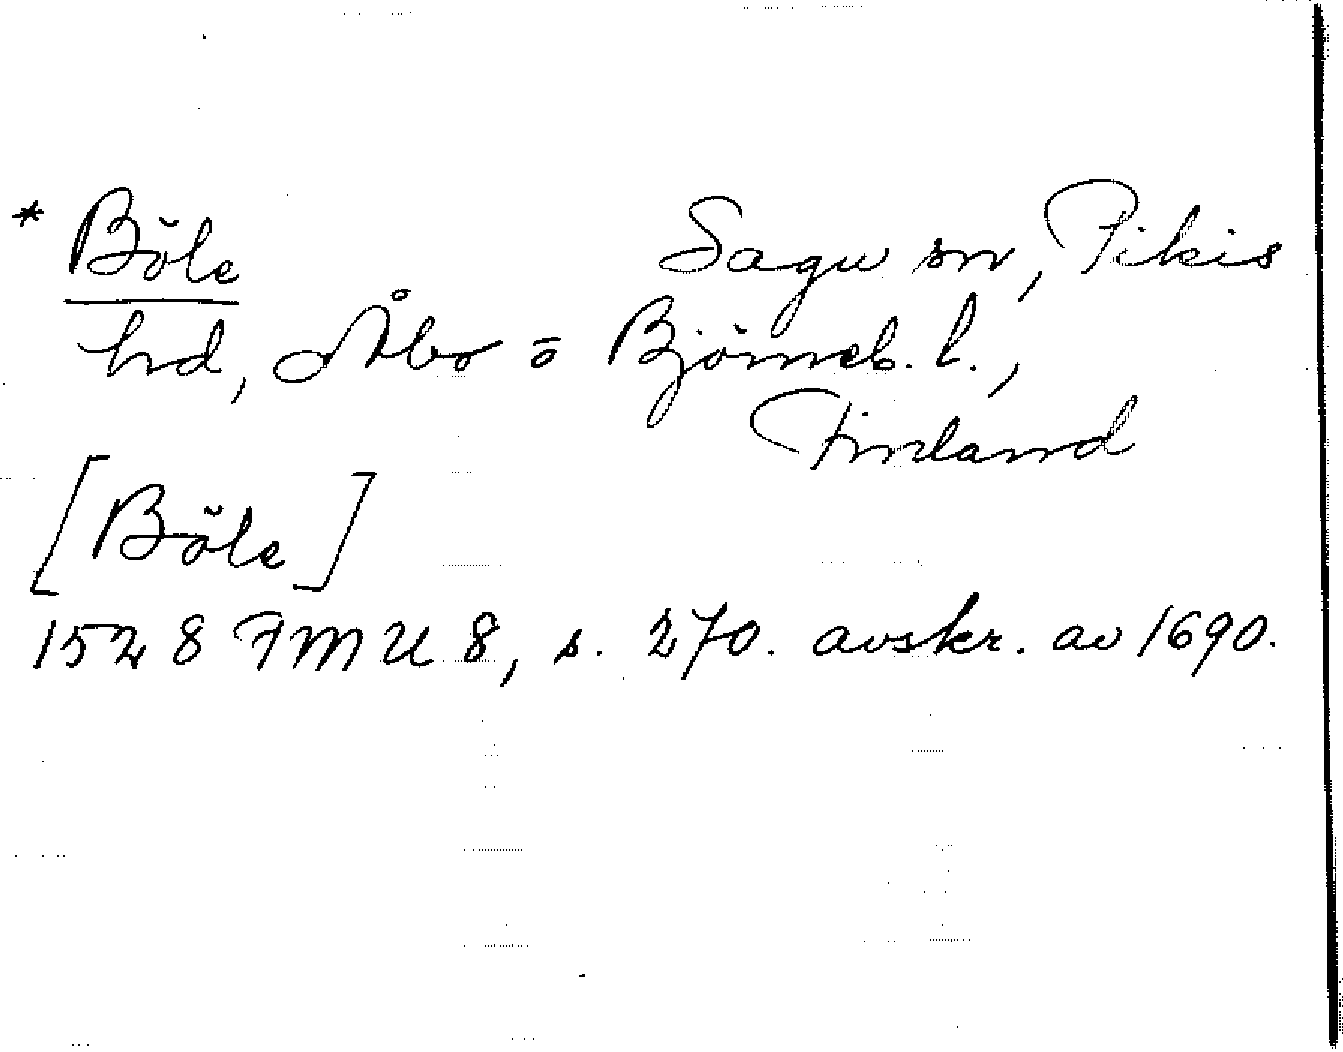 * Böle Sagu sn, Pikis
hd, Åbo o Björneb. l.,
Finland
[Böle]
1528 FMU 8, s. 270. avskr. av 1690.